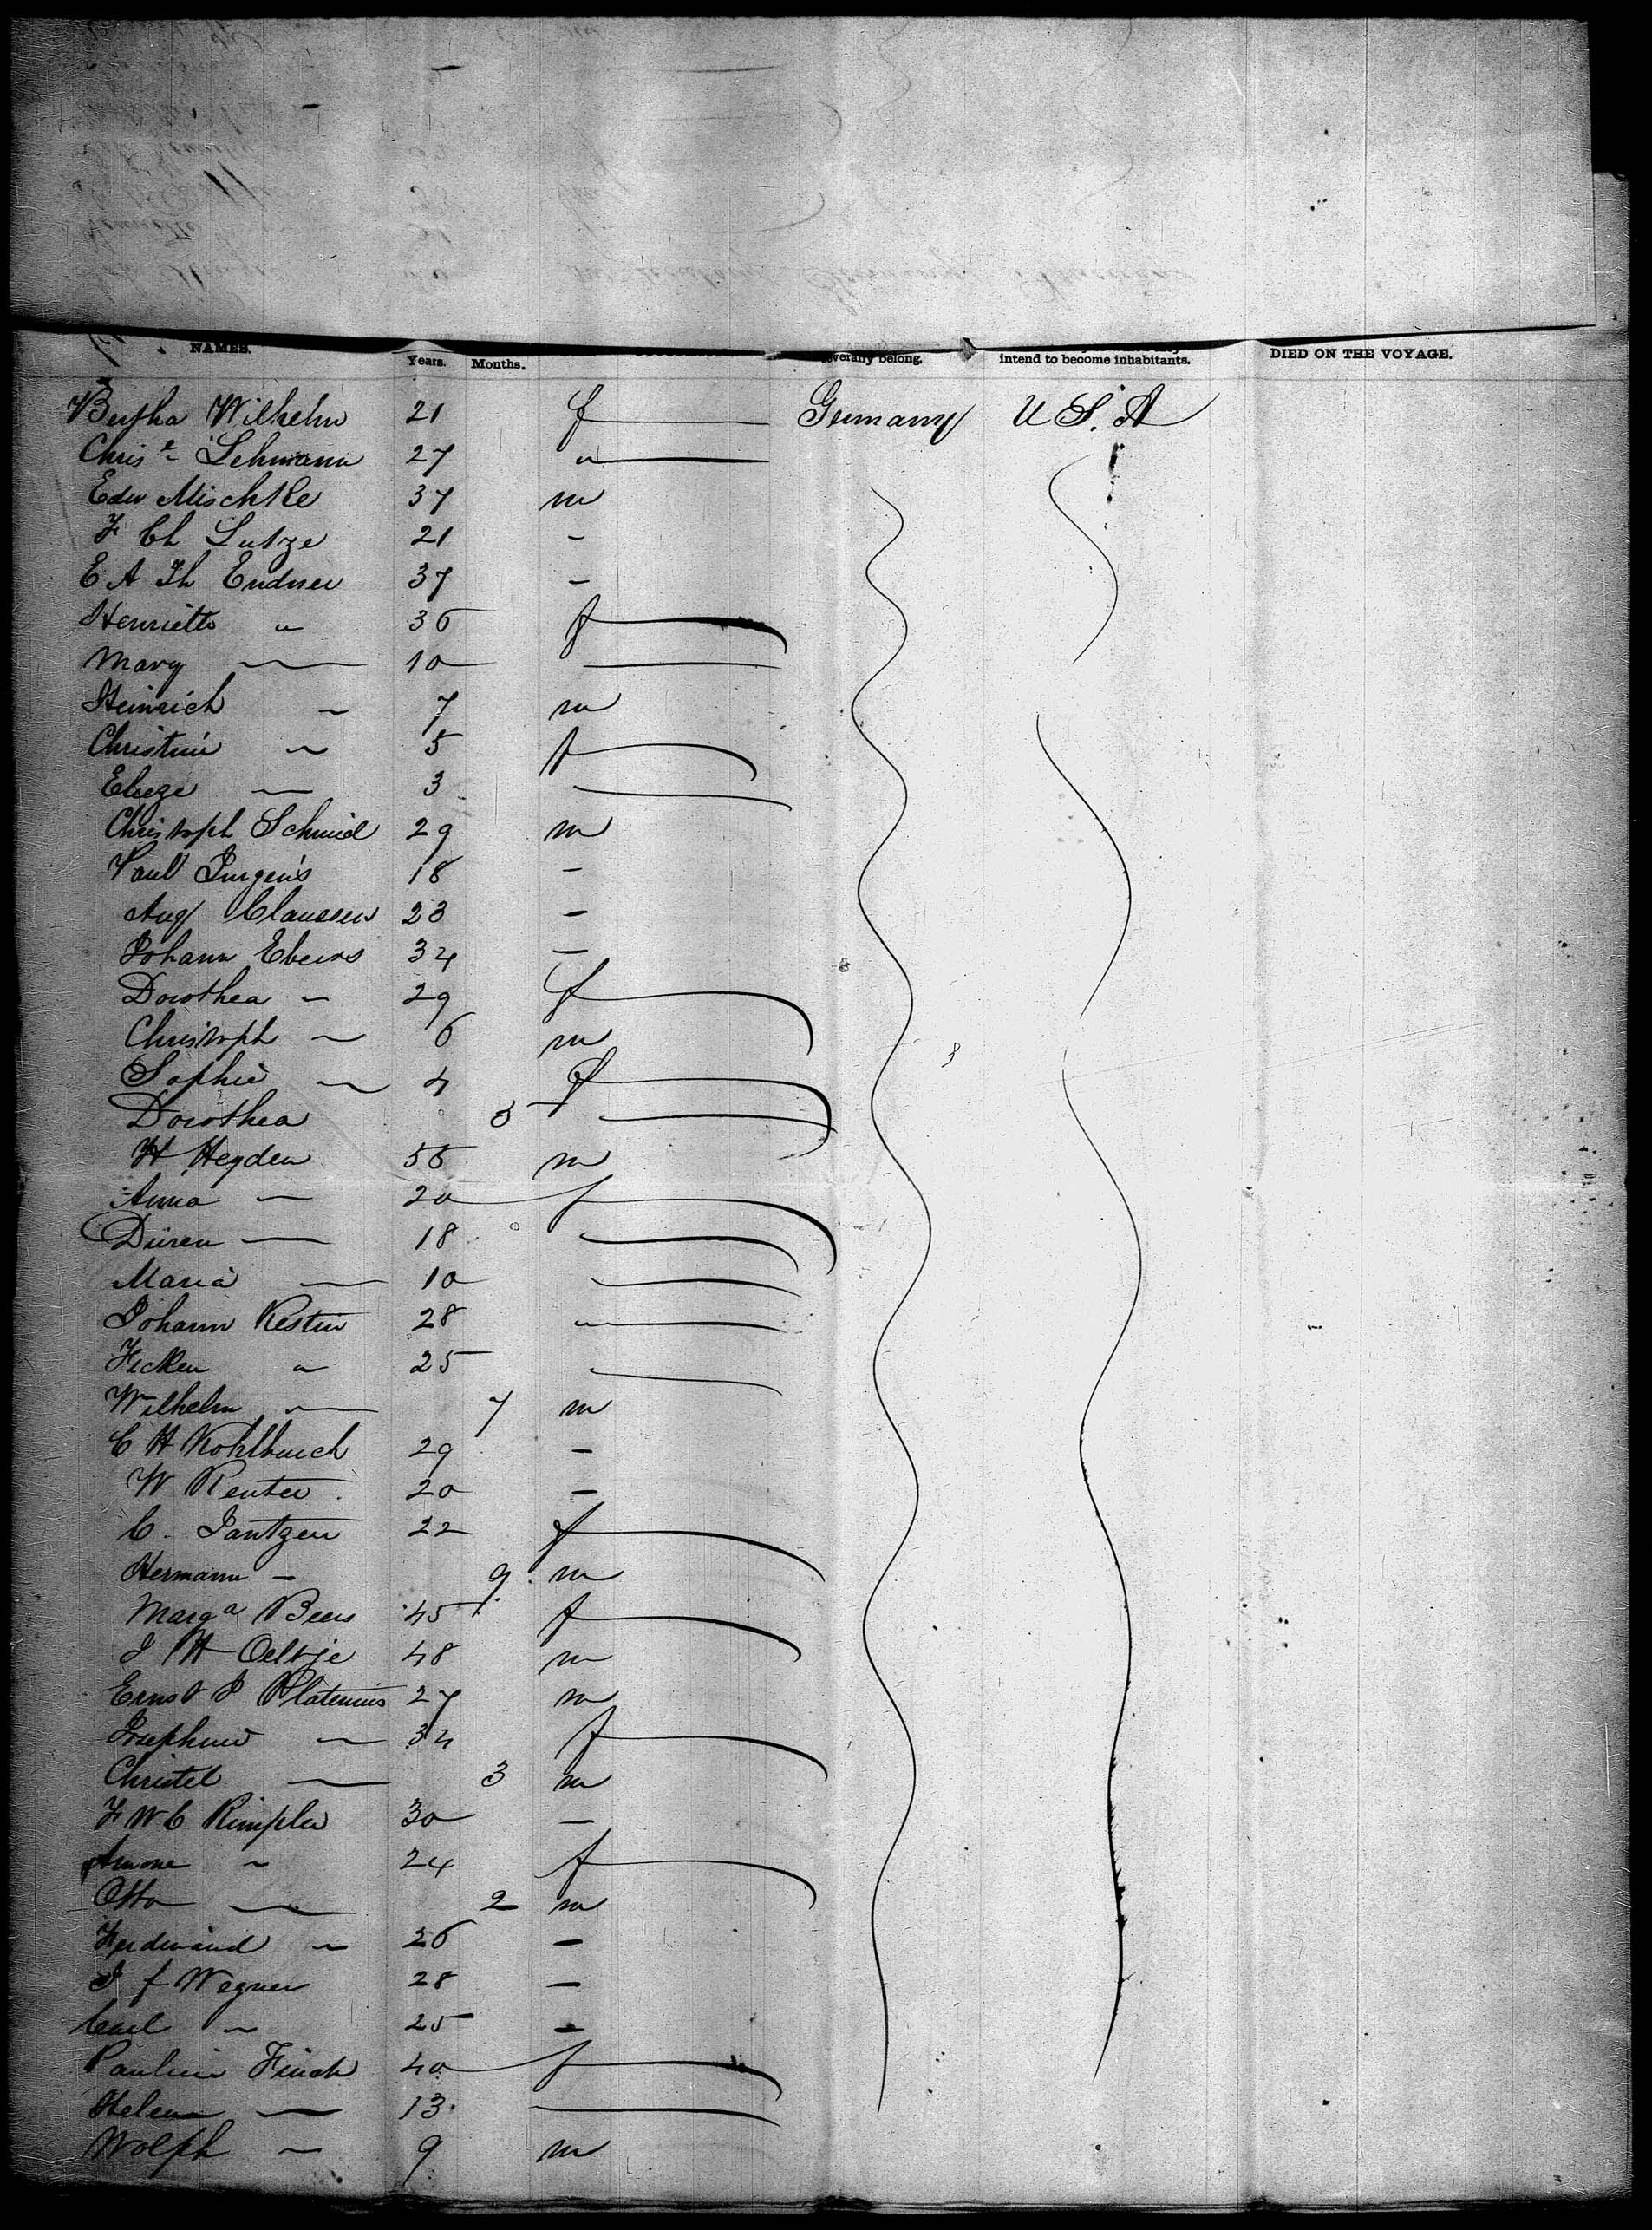 NAMES. Years. Months. severally belong. intend to become inhabitants. DIED ON THE VOYAGE.
Bertha Wilhelm 21 f Germany U S. A
Christe Lehmann 27 "
Edw Mischke 37 m
F Ch Lutze 21 -
E A Th Endner 37 -
Henriette " 36 f
Mary — 10
Heinrich - 7 m
Christine - 5 f
Elieze — 3
Christoph Schmid 29 m
Paul Jurgens 18 -
Aug Claussen 23 -
Johann Ebers 34 -
Dorothea - 29 f
Christoph - 6 m
Sophie - 4 f
Dorothea 3
H Heyden 56 m
Anna - 20 f
Düren — 18
Maria — 10
Johann Kestin 28 "
Ficken " 25
Wilhelm — 7 m
C H Kohlbusch 29 -
W Reuter 20 -
C. Jantzen 22 f
Hermann - 9 m
Marga Beers 45 f
J H Oeltje 48 m
Ernst J Platenius 27 m
Josephine - 34 f
Christel — 3 m
F W C Rimpler 30 -
- 24 f
Otto — 2 m
Ferdinand - 26 -
J F Wegner 28 -
Carl - 25 -
Pauline Finch 40 f
Helena — 13
Wolph - 9 m